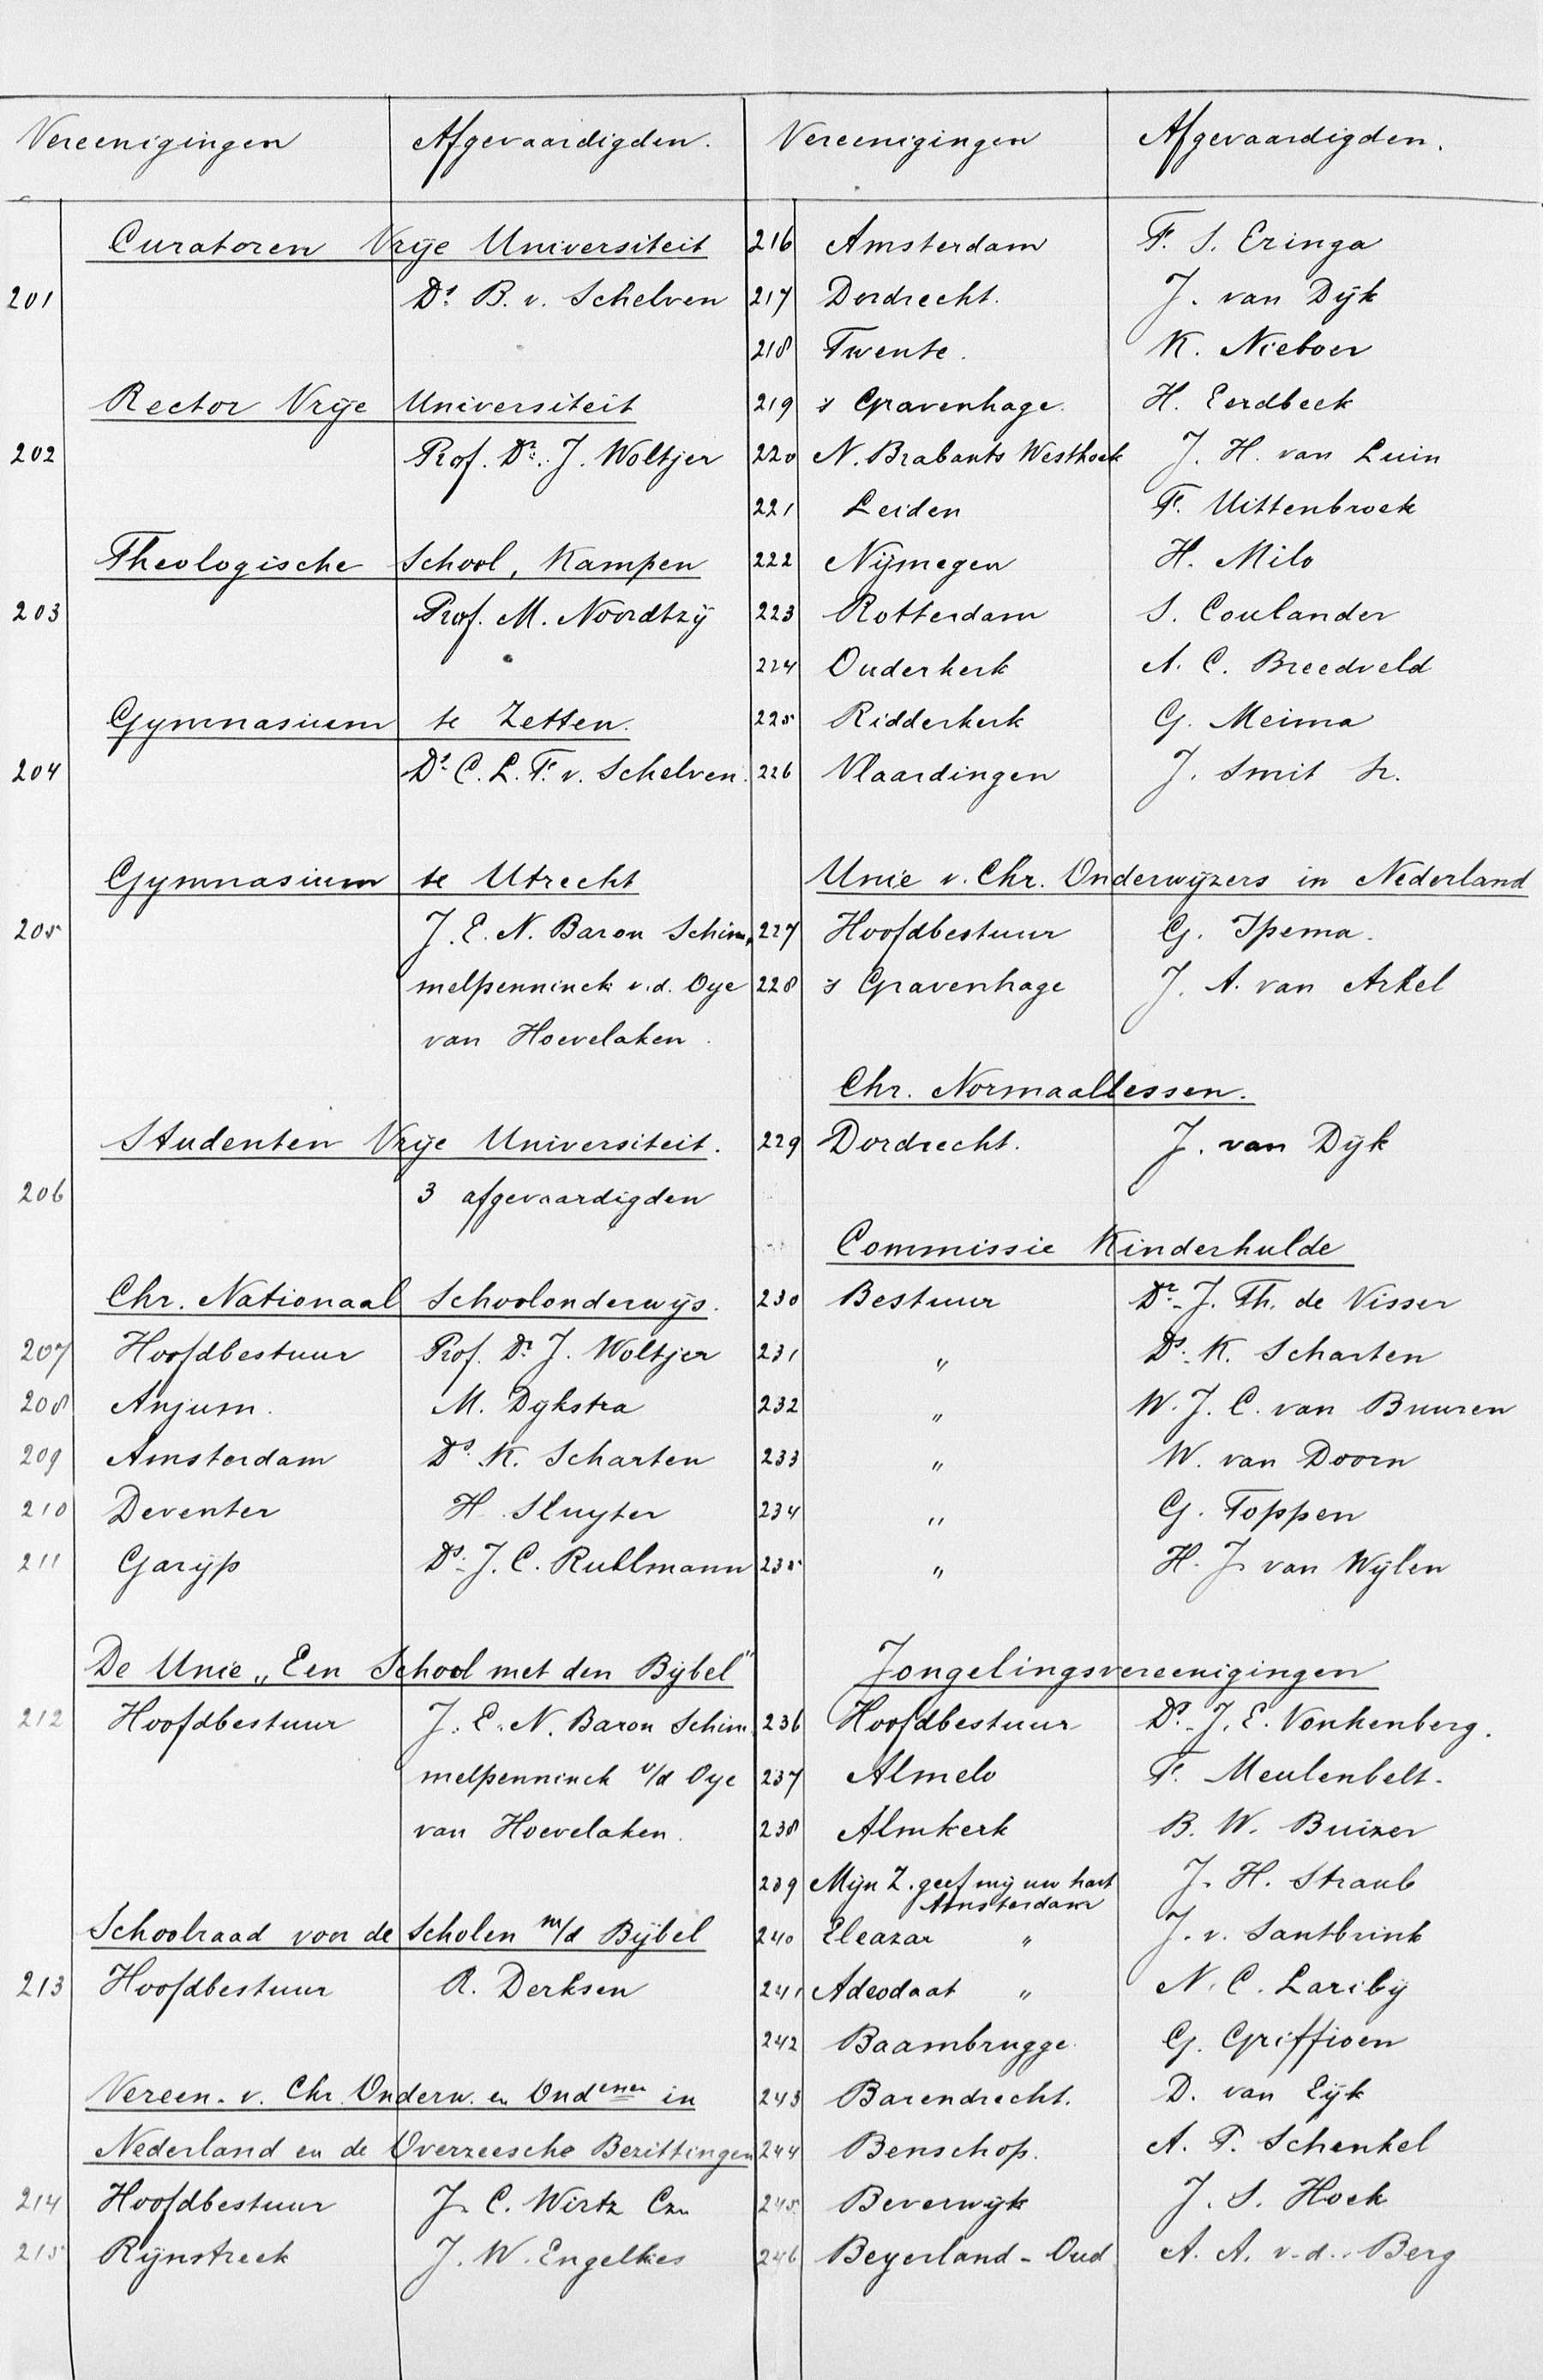 Vereenigingen Afgevaardigden.
Curatoren Vrije Universiteit
201 Ds. B. v. Schelven
Rector Vrije Universiteit
202 Prof. Dr. J. Woltjer
Theologische School, Kampen
203 Prof. M. Noordtzij
Gymnasium te Zetten.
204 Ds. C. L. F. v. Schelven.
Gymnasium te Utrecht
205 J. E. N. Baron Schim-
melpenninck v.d. Oye
van Hoevelaken.
Studenten Vrije Universiteit.
206 3 afgevaardigden
Chr. Nationaal Schoolonderwijs.
207 Hoofdbestuur Prof. Dr. J. Woltjer
208 Anjum. M. Dijkstra
209 Amsterdam Ds. K. Scharten
210 Deventer H. Sluyter
211 Garijp Ds. J. C. Rullmann
De Unie „Een School met den Bijbel"
212 Hoofdbestuur J. E. N. Baron Schim-
melpenninck v/d Oye
van Hoevelaken.
Schoolraad voor de Scholen m/d Bijbel
213 Hoofdbestuur R. Derksen
Vereen. v. Chr. Onderw. en Ond.enen in
Nederland en de Overzeesche Bezittingen
214 Hoofdbestuur J. C. Wirtz Czn
215 Rijnstreek J. W. Engelkes
Vereenigingen Afgevaardigden.
216 Amsterdam F. S. Eringa
217 Dordrecht. J. van Dijk
218 Twente. K. Nieboer
219 's Gravenhage. H. Eerdbeek
220 N. Brabants Westhoek J. H. van Luin
221 Leiden F. Uittenbroek
222 Nijmegen H. Milo
223 Rotterdam S. Coulander
224 Ouderkerk A. C. Breedveld
225 Ridderkerk G. Meima
226 Vlaardingen J. Smit Sr.
Unie v. Chr. Onderwijzers in Nederland
227 Hoofdbestuur G. Ipema.
228 's Gravenhage J. A. van Arkel
Chr. Normaallessen.
229 Dordrecht. J. van Dijk
Commissie Kinderhulde
230 Bestuur Dr. J. Th. de Visser
231 „ Ds. K. Scharten
232 „ W. J. C. van Buuren
233 „ W. van Doorn
234 „ G. Toppen
235 „ H. J. van Wijlen
Jongelingsvereenigingen
236 Hoofdbestuur Ds. J. E. Vonkenberg.
237 Almelo F. Meulenbelt.
238 Almkerk B. W. Buizer
239 Mijn Z. geef mij uw hart J. H. Straub
Amsterdam
240 Eleazar „ J. v. Santbrink
241 Adeodaat „ N. C. Lariby
242 Baambrugge. G. Griffioen
243 Barendrecht. D. van Eijk
244 Benschop. A. T. Schenkel
245 Beverwijk J. S. Hoek
246 Beyerland - Oud A. A. v.d. Berg